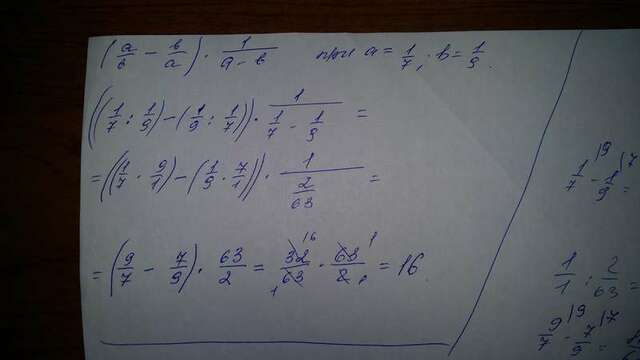 (a/b - b/a) · 1/(a-b) при a = 1/7; b = 1/9.
((1/7 : 1/9) - (1/9 : 1/7)) · 1/(1/7 - 1/9) =
= ((1/7 · 9/1) - (1/9 · 7/1)) · 1/(2/63) =
= (9/7 - 7/9) · 63/2 = 32/63 · 63/2 = 16.
1/7 - 1/9 =
1/1 : 2/63 =
9/7 - 7/9 =